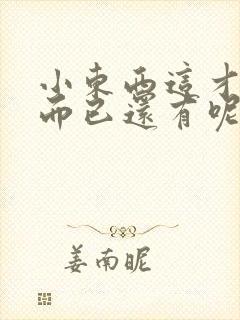 小東西這才
而已還有呢
姜南昵